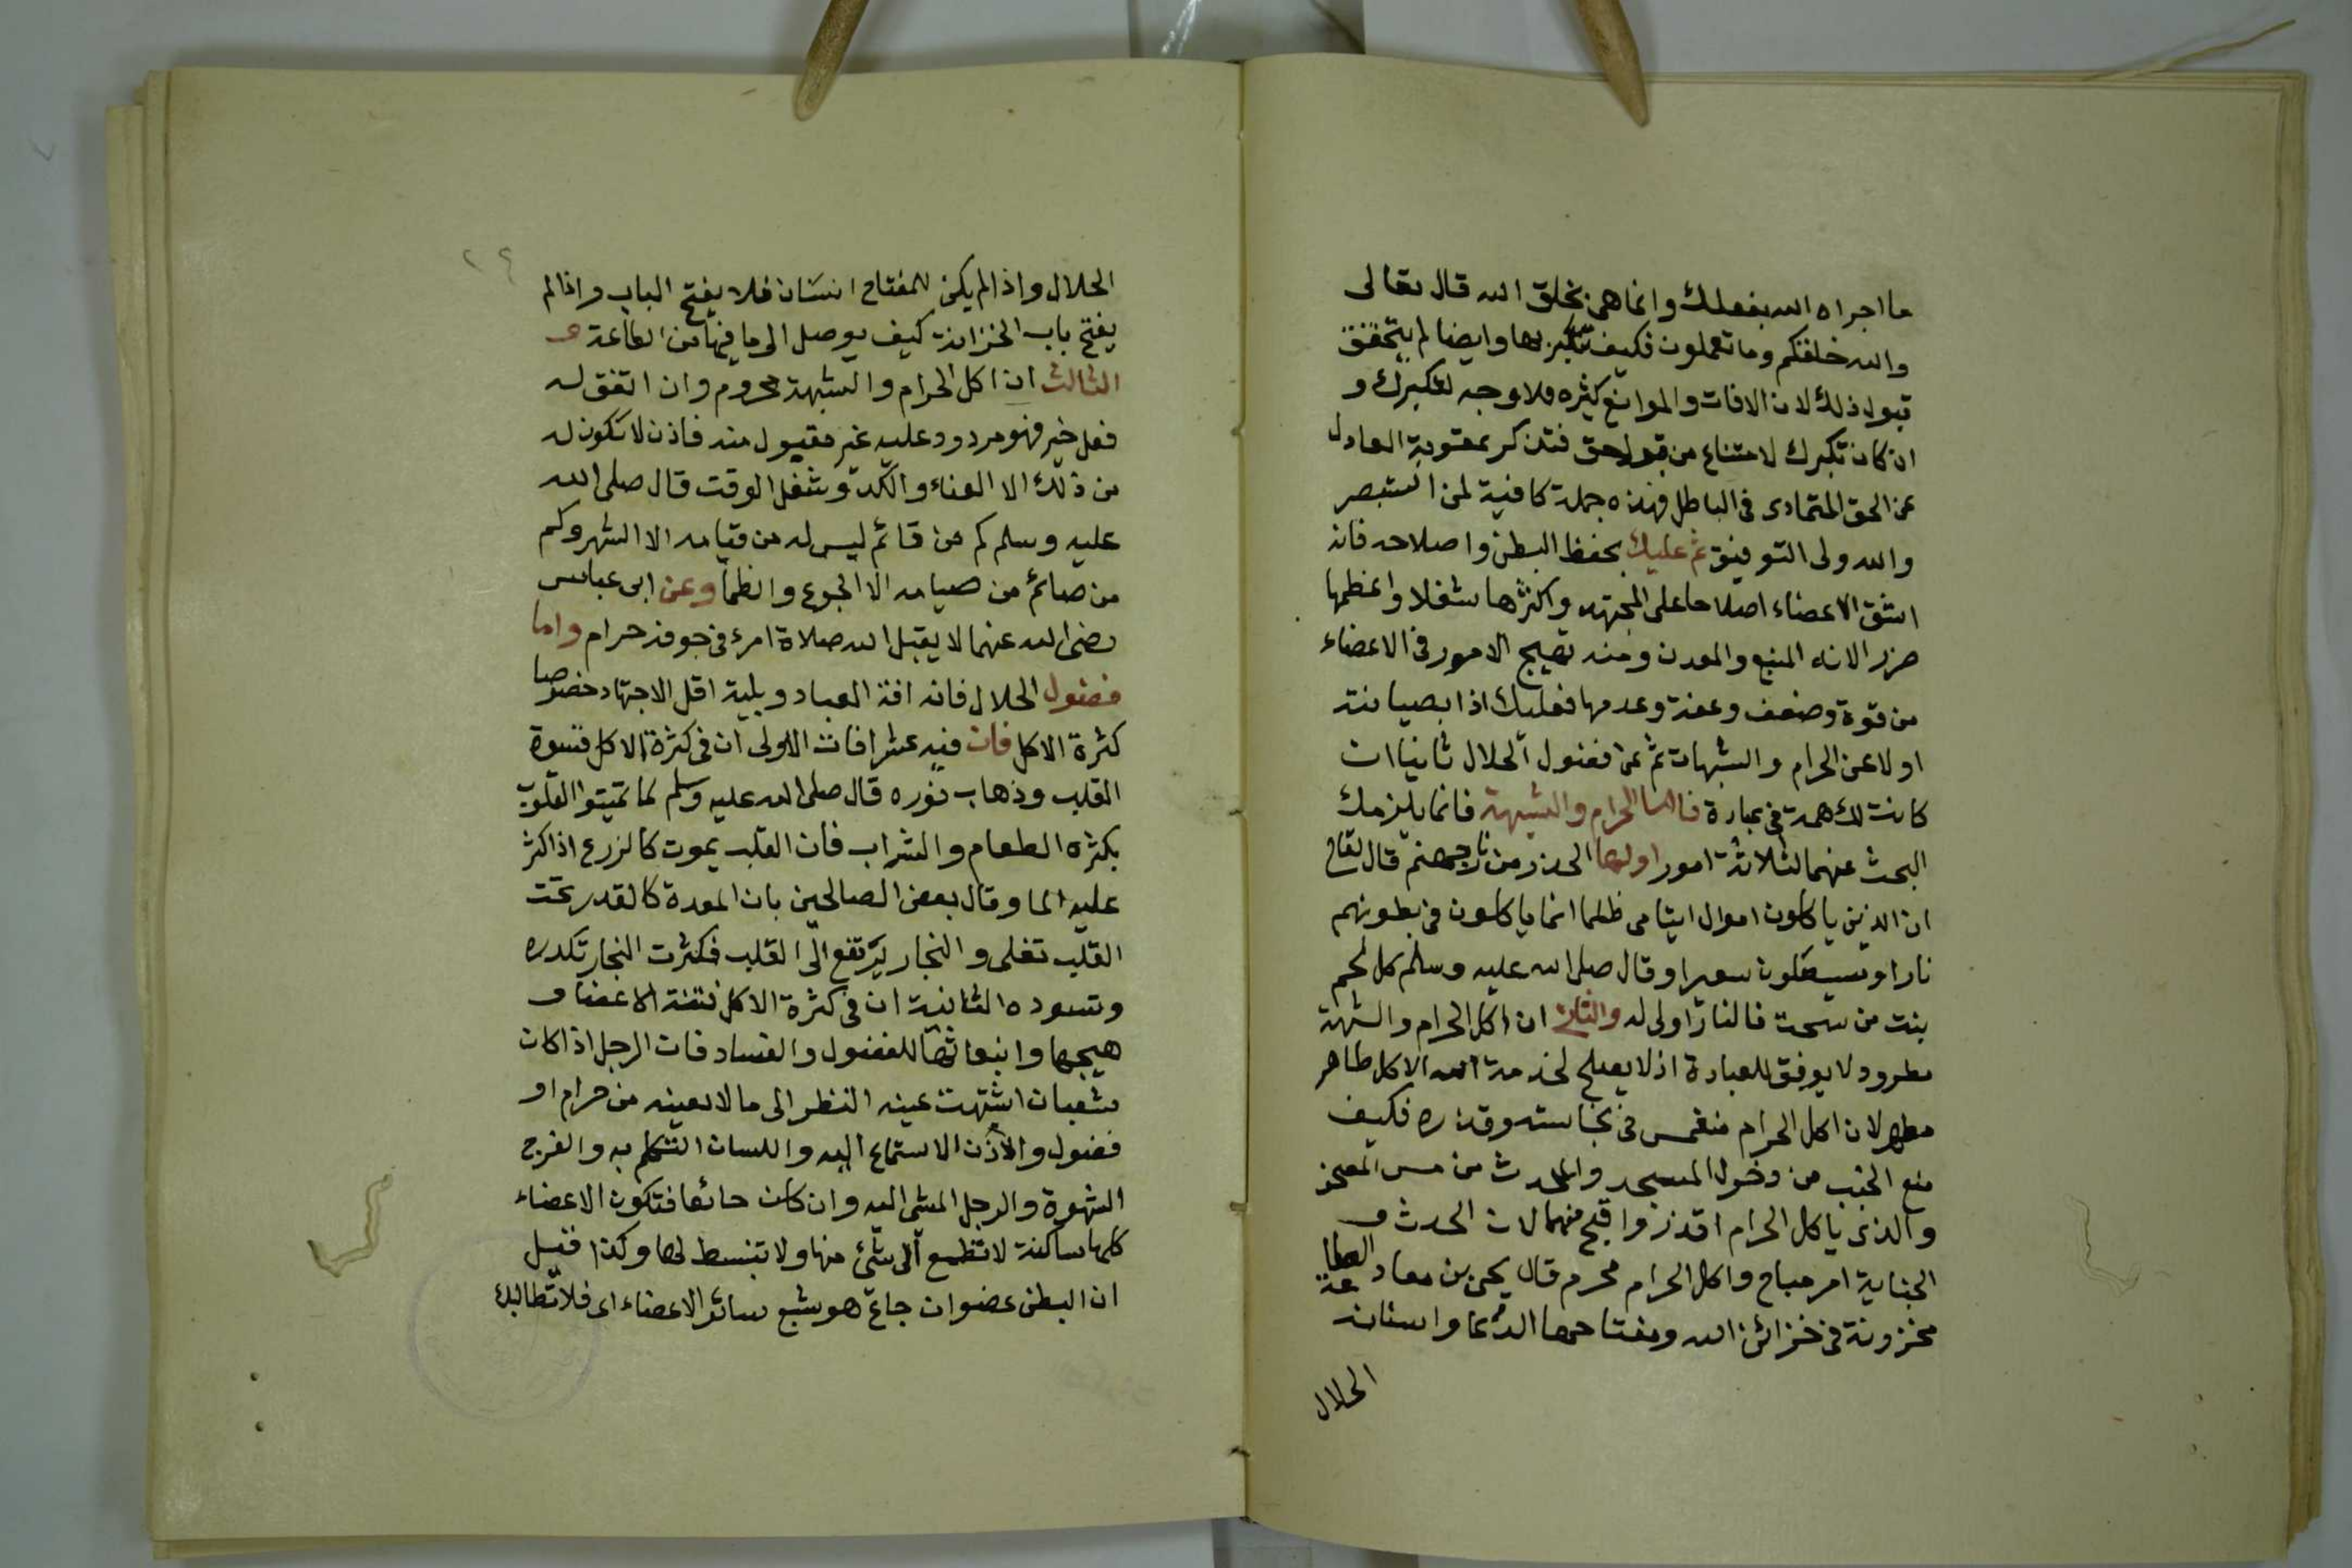 ما اجراه الله بفعلك وانما هى بخلق الله قال تعالى
والله خلقكم وما تعملون فكيف تتكبر بها وايضا لم يتحقق
قبول ذلك لان الافات والموانع كثيره فلا وجه لتكبرك و
ان كان تكبرك لامتناع من قول حق فتذكر عقوبة العادل
عن الحق المتمادى فى الباطل فهذه جملة كافية لمن استبصر
والله ولى التوفيق ثم عليك بحفظ البطن واصلاحه فانه
اشق الاعضاء اصلاحا على المجتهد واكثرها شغلا واعظمها
ضررا لانه المنبع والمعدن ومنه تهيج الامور فى الاعضاء
من قوة وضعف وعفة وعدمها فعليك اذا بصيانته
اولا عن الحرام والشبهات ثم عن فضول الحلال ثانيا ان
كانت لك همة فى عبادة فاما الحرام والشبهة فانما يلزمك
البحث عنهما لثلاثة امور اولها الحذر من نار جهنم قال تعالى
ان الذين ياكلون اموال ايتامى ظلما انما ياكلون فى بطونهم
نارا وسيصلون سعيرا وقال صلى الله عليه وسلم كل لحم
نبت من سحت فالنار اولى له والثانى ان اكل الحرام والشبهة
مطرود لا يوفق للعبادة اذ لا يصلح لخدمة الله الا كل طاهر
مطهر لان اكل الحرام منغمس فى نجاسته وقذره فكيف
منع الجنب من دخول المسجد والمحدث من مس المصحف
والذى ياكل الحرام اقذر واقبح منهما لان الحدث و
الجنابة امر مباح واكل الحرام محرم قال يحى بن معاد الطاعة
مخزونة فى خزائن الله ومفتاحها الدعا واسنانه
الحلال
٢٩
الحلال واذا لم يكن للمفتاح انسان فلا يفتح الباب واذا لم
يفتح باب الخزانة كيف يوصل الى ما فيها من الطاعة
الثالث ان اكل الحرام والشبهة محروم وان اتفق له
فعل خير فهو مردود عليه غير مقبول منه فاذن لا تكون له
من ذلك الا العناء والكد وشغل الوقت قال صلى الله
عليه وسلم كم من قائم ليس له من قيامه الا السهر وكم
من صائم من صيامه الا الجوع والظما وعن ابى عباس
رضى الله عنهما لا يقبل الله صلاة امرء فى جوفه حرام واما
فضول الحلال فانه افة العباد وبلية اقل الاجتهاد خصوصا
كثرة الاكل فان فيه عشر افات الاولى ان فى كثرة الاكل قسوة
القلب وذهاب نوره قال صلى الله عليه وسلم لا تميتوا القلوب
بكثرة الطعام والشراب فان القلب يموت كالزرع اذا كثر
عليه الما وقال بعض الصالحين بان المعدة كالقدر تحت
القلب تغلى و البخار يرتفع الى القلب فكثرت البخار تكدره
وتسوده الثانية ان فى كثرة الاكل فتنة الاعضا و
هيجها وانبعاثها للفضول والفساد فان الرجل اذا كان
شعبان اشتهت عينه النظر الى ما لا يعينه من حرام او
فضول والاذن الاستماع اليه واللسان التكلم به والفرج
الشهوة والرجل المشى اليه وان كان جائعا فتكون الاعضاء
كلها ساكنة لا تطمع الى شئ منها ولا تنبسط لها وكذا قيل
ان البطن عضو ان جاع هو شبع سائر الاعضاء اى فلا تطالبك